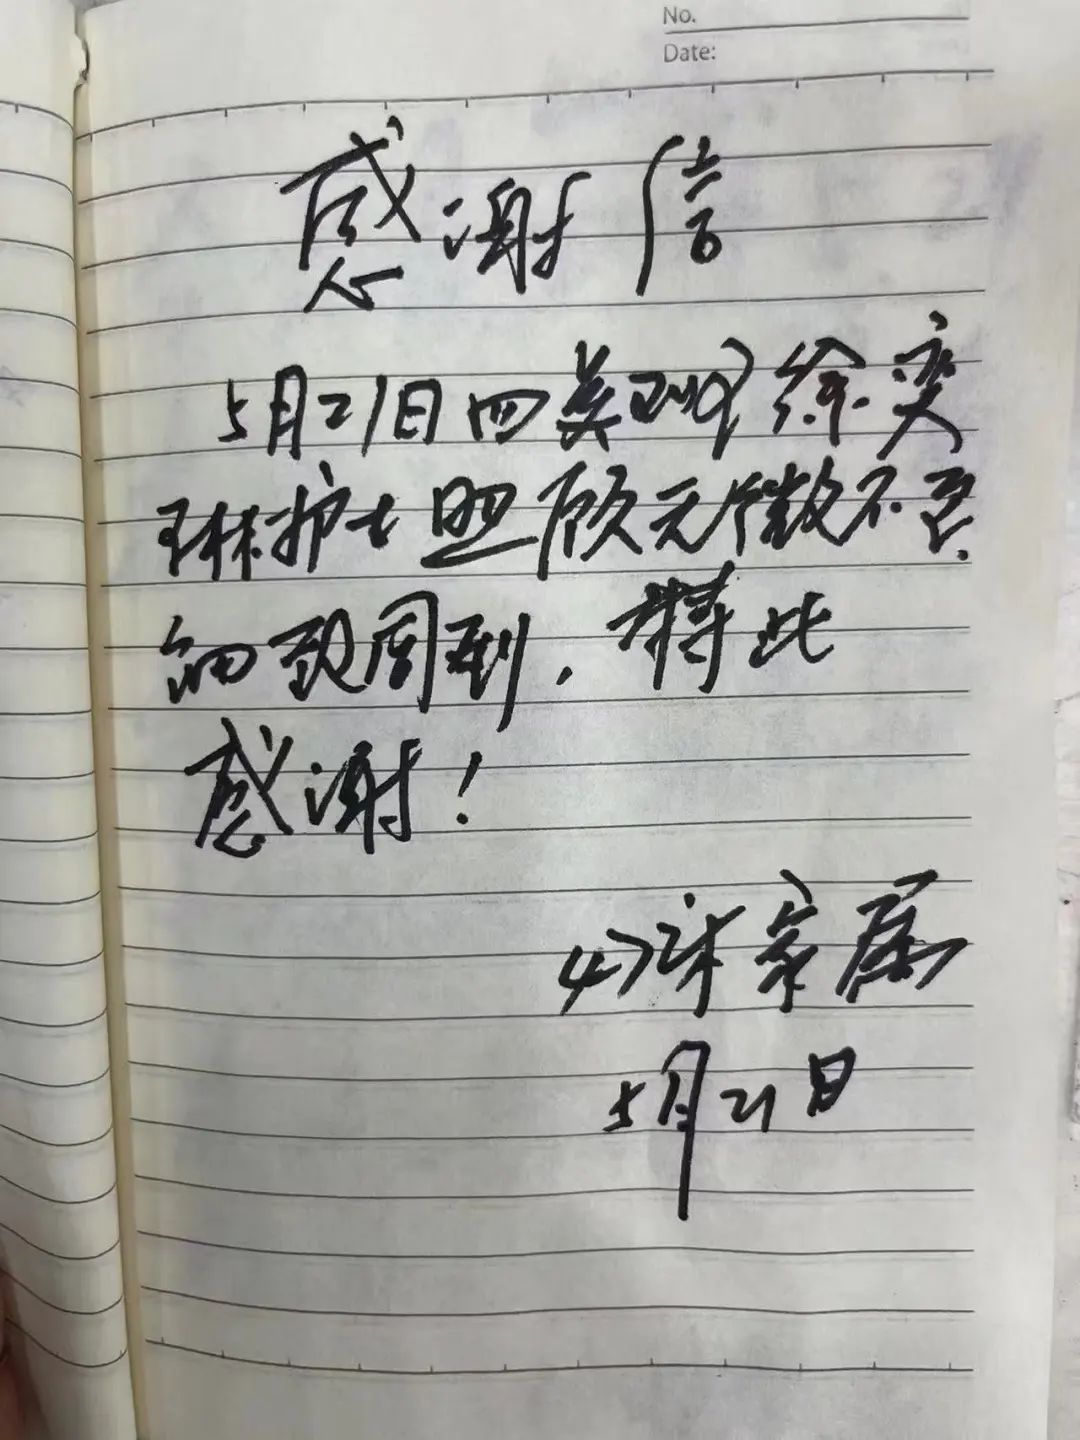 No.
Date:
感谢信
5月21日四美 徐雯
琳护士照顾无微不至
细致周到.特此
感谢!
47床家属
5月21日